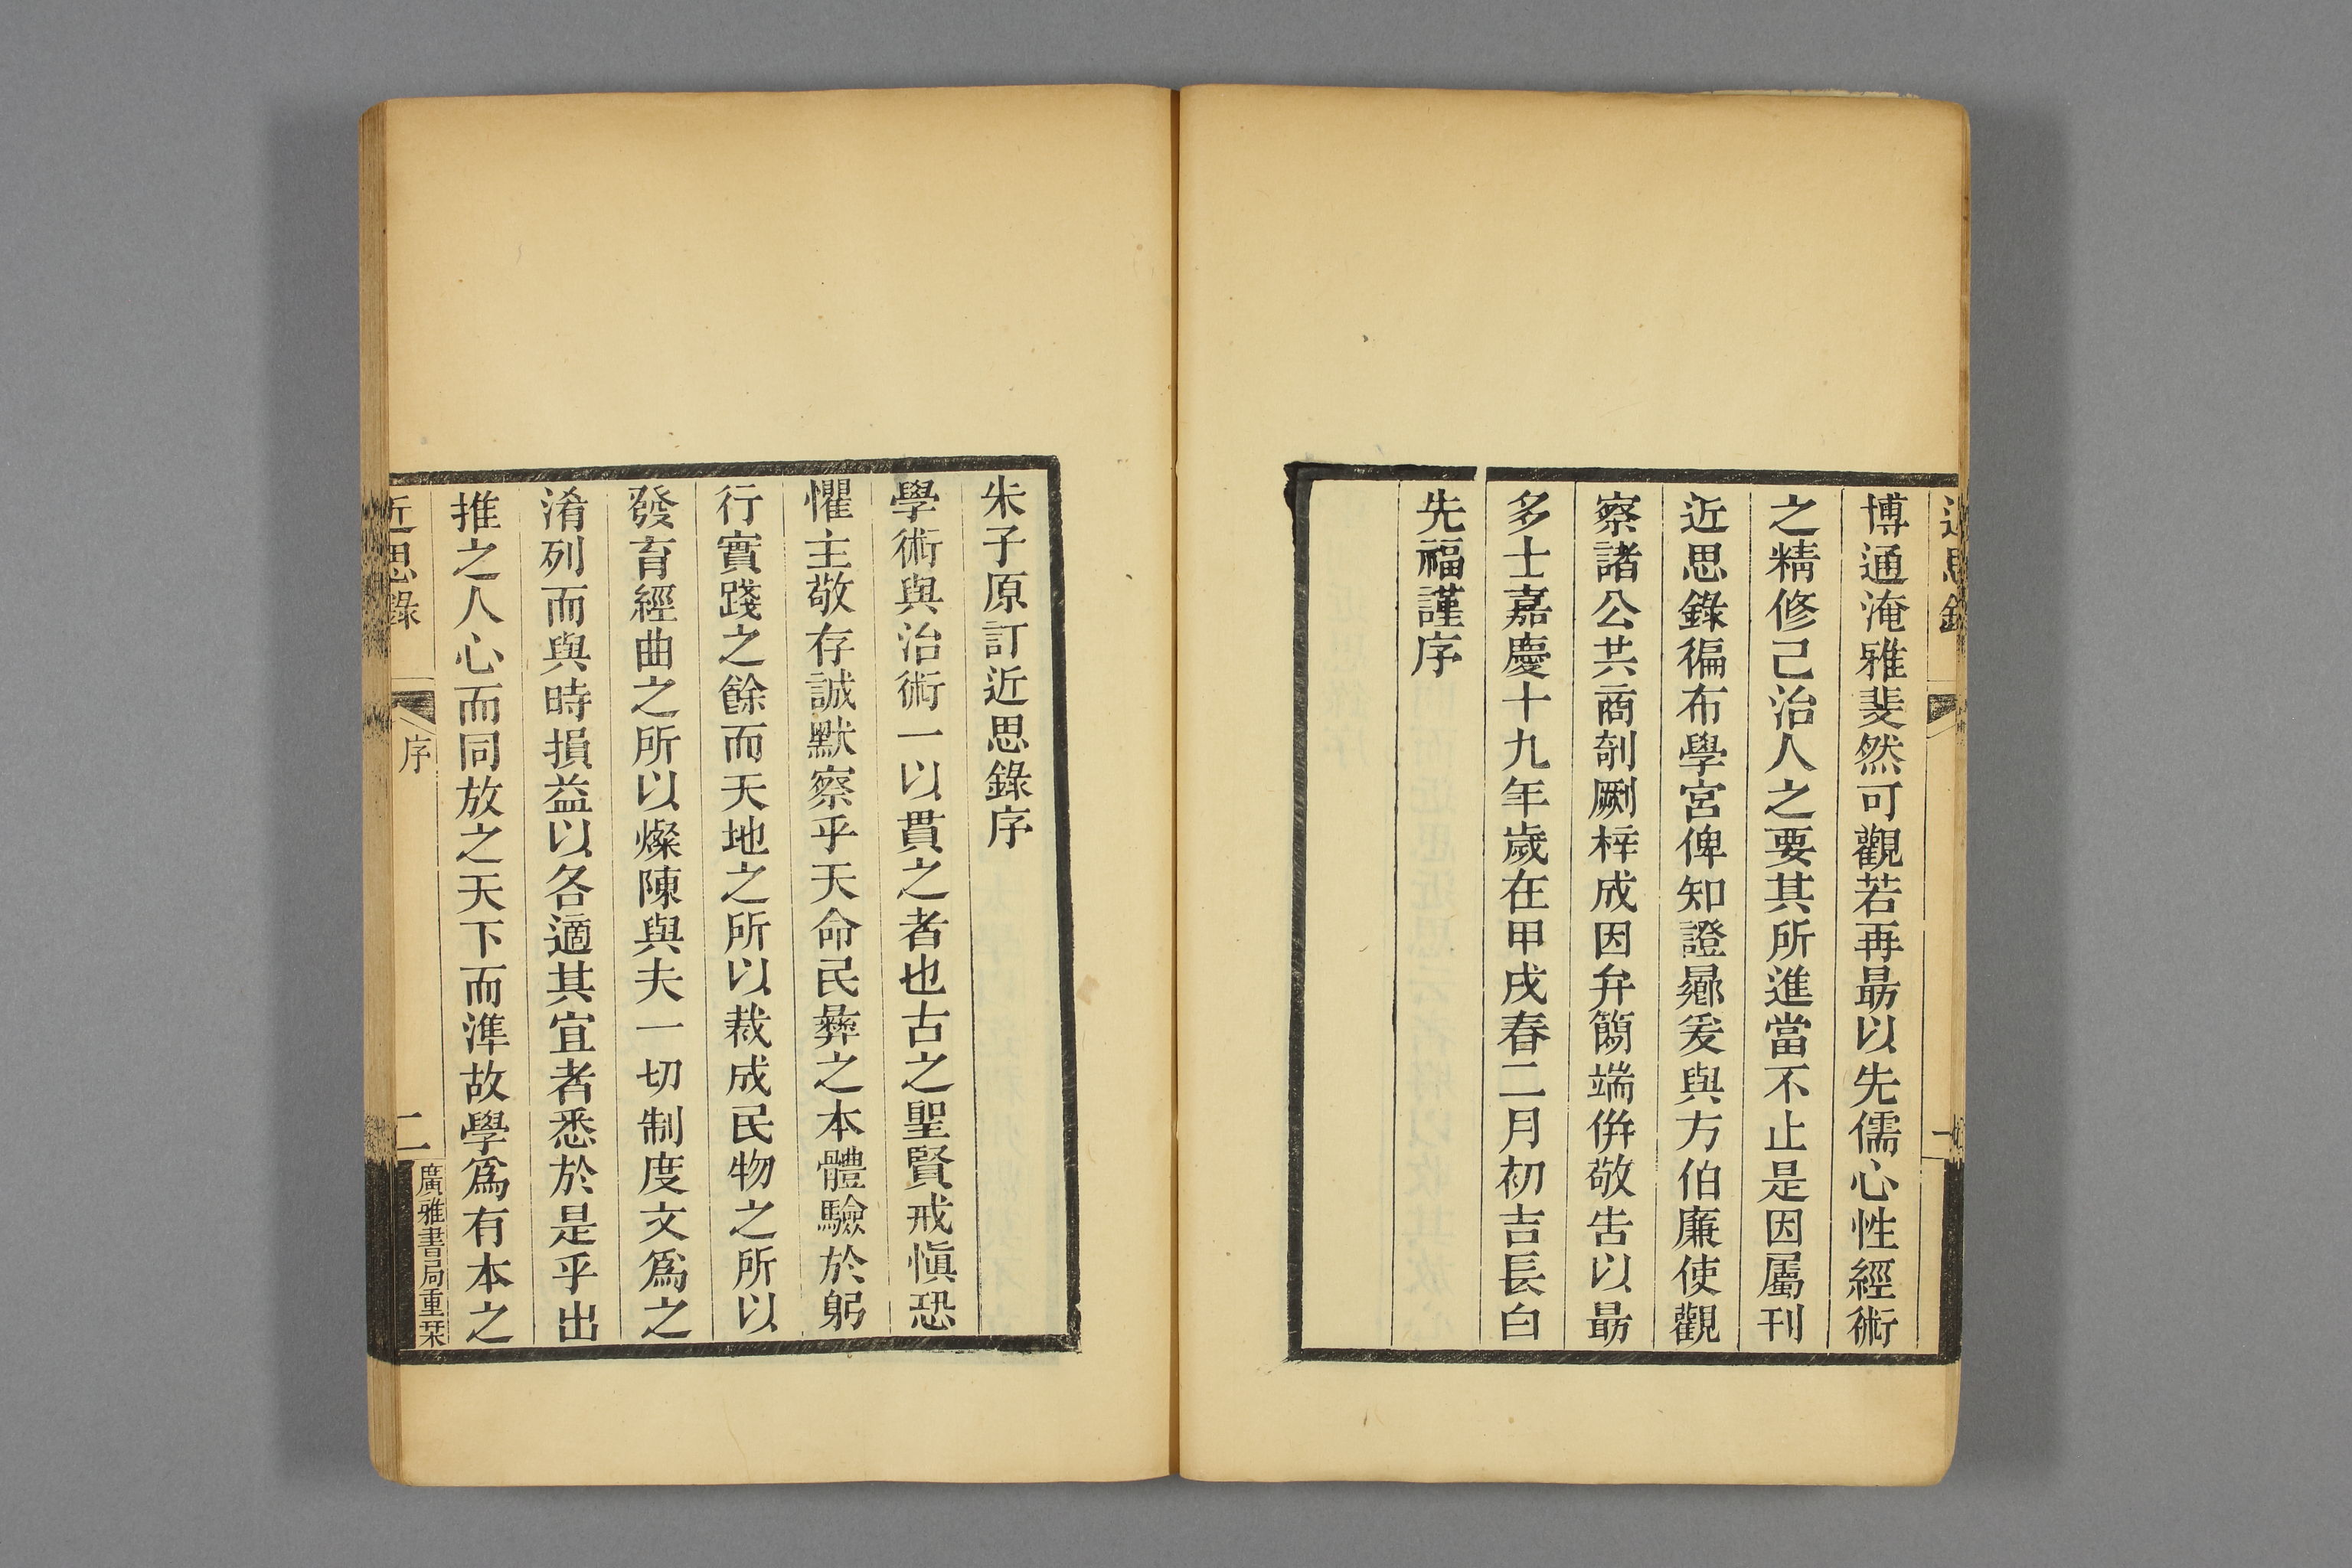 近思錄
一
博通淹雅斐然可觀若再勗以先儒心性經術
之精修己治人之要其所進當不止是因屬刊
近思錄徧布學宮俾知證曏爰與方伯廉使觀
察諸公共商剞劂梓成因弁簡端倂敬告以勗
多士嘉慶十九年歲在甲戌春二月初吉長白
先福謹序
朱子原訂近思錄序
學術與治術一以貫之者也古之聖賢戒愼恐
懼主敬存誠默察乎天命民彝之本體驗於躬
行實踐之餘而天地之所以裁成民物之所以
發育經曲之所以燦陳與夫一切制度文爲之
淆列而與時損益以各適其宜者悉於是乎出
推之人心而同放之天下而準故學爲有本之
近思錄
序
二
廣雅書局重栞